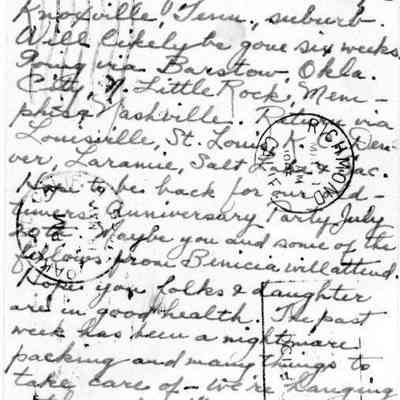 Knoxville, Tenn., suburb.
Will likely be gone six weeks.
Going via Barstow, Okla.
City, Little Rock, Mem-
phis, Nashville. Return via
Louisville, St. Louis, K. Den-
ver, Laramie, Salt Lake, Sac.
Hope to be back for our old-
timers Anniversary Party July
Maybe you and some of the
fellows from Benicia will attend.
Hope you folks & daughter
are in good health. The past
week has been a nightmare
packing and many things to
take care of - We're hanging
RICHMOND
CALIF.